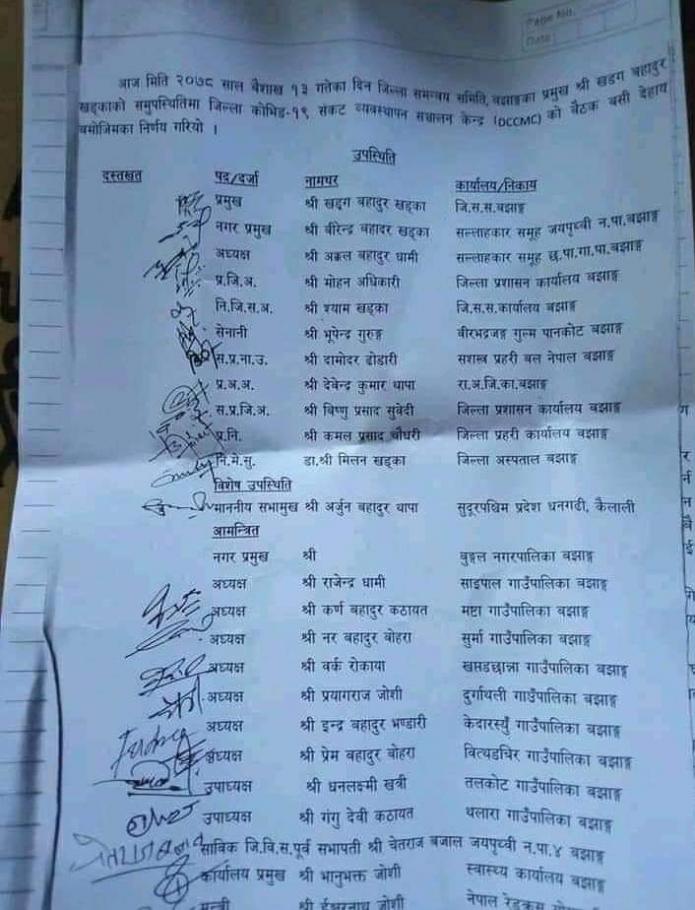 Page No.
Date
आज मिति २०७८ साल बैशाख १३ गतेका दिन जिल्ला समन्वय समिति, बझाङ्गका प्रमुख श्री खडग बहादुर
खड्काको समुपस्थितिमा जिल्ला कोभिड-१९ संकट व्यवस्थापन संचालन केन्द्र (DCCMC) को बैठक बसी देहाय
बमोजिमका निर्णय गरियो ।
उपस्थिति
दस्तखत पद/दर्जा नामथर कार्यालय/निकाय
प्रमुख श्री खड्ग बहादुर खड्का जि.स.स.बझाङ्ग
नगर प्रमुख श्री बीरेन्द्र बहादर खड्का सल्लाहकार समूह जयपृथ्वी न.पा.बझाङ्ग
अध्यक्ष श्री अक्कल बहादुर धामी सल्लाहकार समूह छ.पा.गा.पा.बझाङ्ग
प्र.जि.अ. श्री मोहन अधिकारी जिल्ला प्रशासन कार्यालय बझाङ्ग
नि.जि.स.अ. श्री श्याम खड्का जि.स.स.कार्यालय बझाङ्ग
सेनानी श्री भूपेन्द्र गुरुङ्ग बीरभद्रजङ्ग गुल्म पानकोट बझाङ्ग
स.प्र.ना.उ. श्री दामोदर ढोडारी सशस्त्र प्रहरी बल नेपाल बझाङ्ग
प्र.अ.अ. श्री देवेन्द्र कुमार थापा रा.अ.जि.का.बझाङ्ग
स.प्र.जि.अ. श्री विष्णु प्रसाद सुवेदी जिल्ला प्रशासन कार्यालय बझाङ्ग
प्र.नि. श्री कमल प्रसाद चौधरी जिल्ला प्रहरी कार्यालय बझाङ्ग
नि.मे.सु. डा.श्री मिलन खड्का जिल्ला अस्पताल बझाङ्ग
विशेष उपस्थिति
माननीय सभामुख श्री अर्जुन बहादुर थापा सुदूरपश्चिम प्रदेश धनगढी, कैलाली
आमन्त्रित
नगर प्रमुख श्री बुङ्गल नगरपालिका बझाङ्ग
अध्यक्ष श्री राजेन्द्र धामी साइपाल गाउँपालिका बझाङ्ग
अध्यक्ष श्री कर्ण बहादुर कठायत मष्टा गाउँपालिका बझाङ्ग
अध्यक्ष श्री नर बहादुर बोहरा सुर्मा गाउँपालिका बझाङ्ग
अध्यक्ष श्री वर्क रोकाया खप्तडछान्ना गाउँपालिका बझाङ्ग
अध्यक्ष श्री प्रयागराज जोशी दुर्गाथली गाउँपालिका बझाङ्ग
अध्यक्ष श्री इन्द्र बहादुर भण्डारी केदारस्युँ गाउँपालिका बझाङ्ग
अध्यक्ष श्री प्रेम बहादुर बोहरा वित्थडचिर गाउँपालिका बझाङ्ग
उपाध्यक्ष श्री धनलक्ष्मी खत्री तलकोट गाउँपालिका बझाङ्ग
उपाध्यक्ष श्री गंगु देवी कठायत थलारा गाउँपालिका बझाङ्ग
साविक जि.वि.स.पूर्व सभापती श्री चेतराज बजाल जयपृथ्वी न.पा.४ बझाङ्ग
कार्यालय प्रमुख श्री भानुभक्त जोशी स्वास्थ्य कार्यालय बझाङ्ग
मन्त्री श्री ईश्वरनाथ जोशी नेपाल रेडक्रस